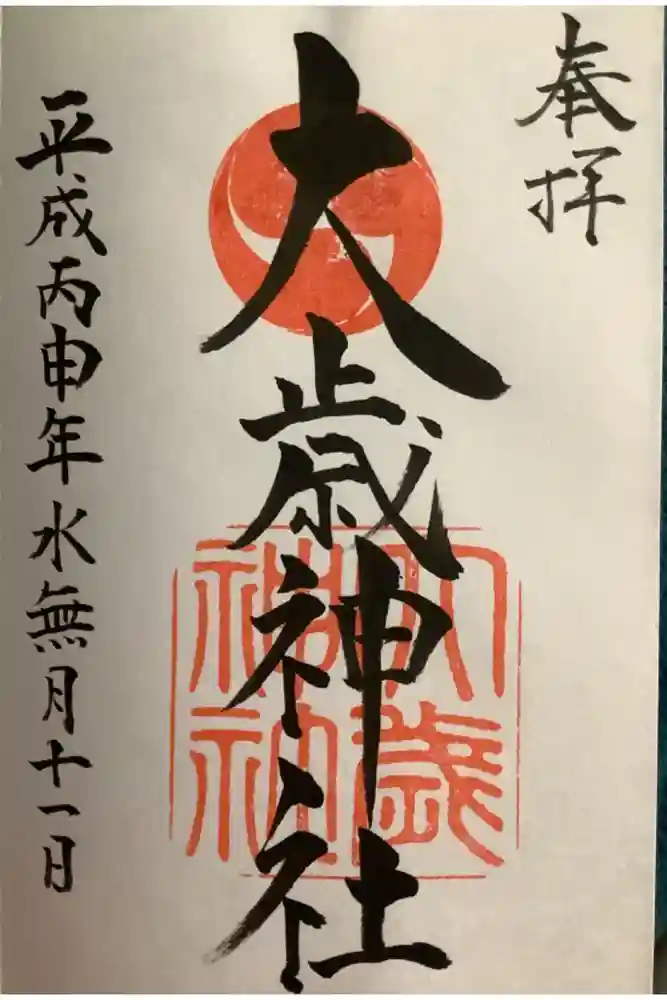 奉拝
大歳神社
大歳
神社
平成丙申年水無月十一日